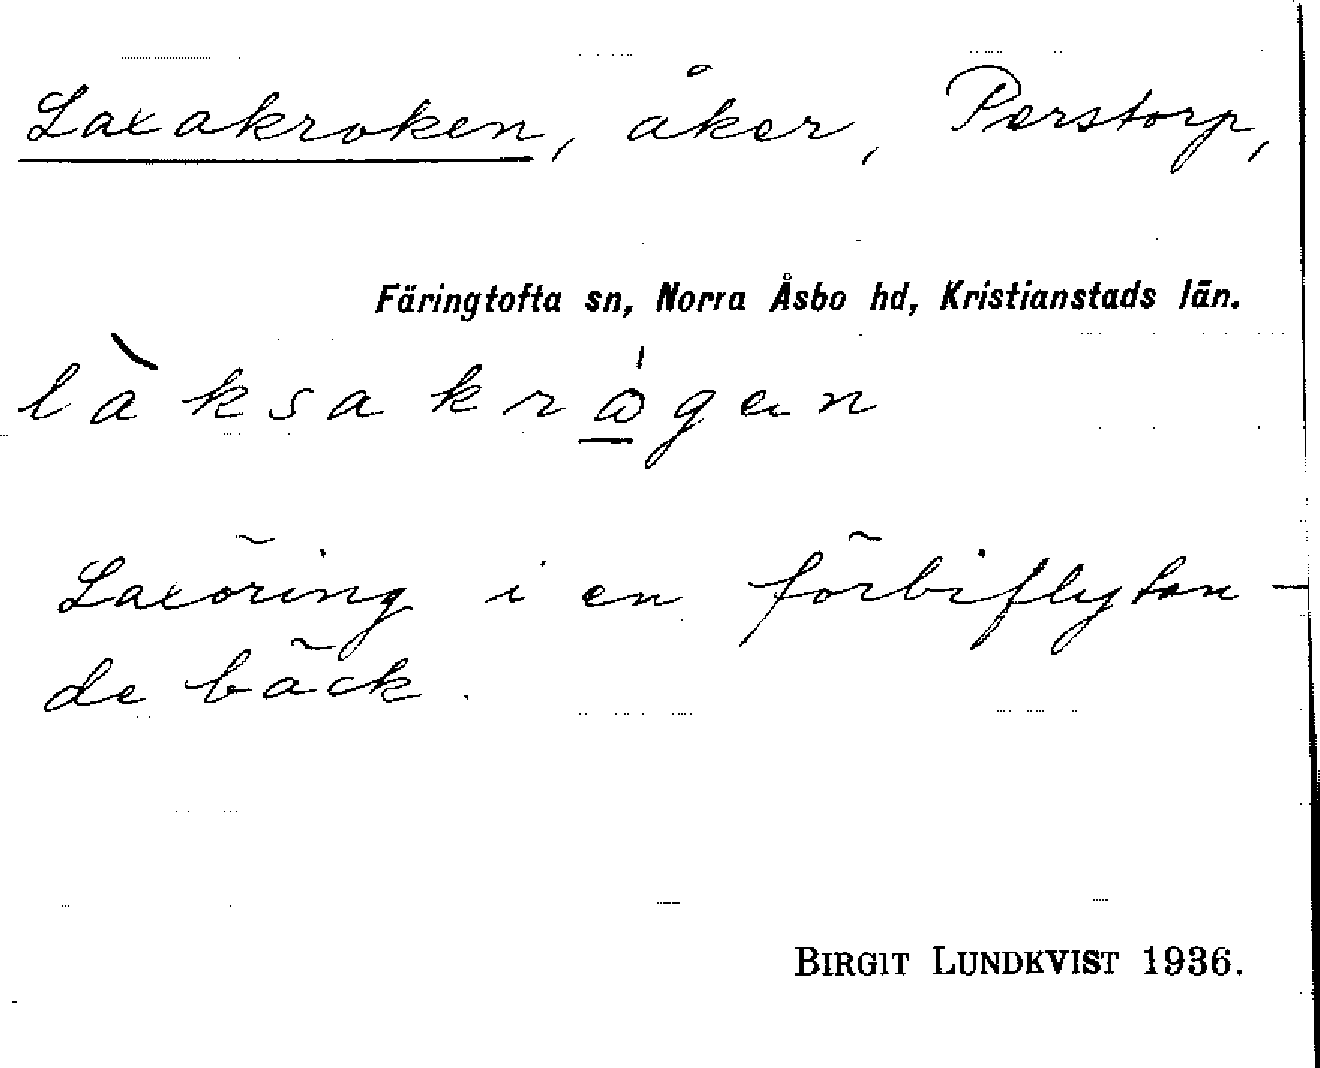 Laxakroken, åker, Perstorp,
Färingtofta sn, Norra Åsbo hd, Kristianstads län.
làksakrógan
Laxöring i en förbiflytan-
de bäck.
BIRGIT LUNDKVIST 1936.